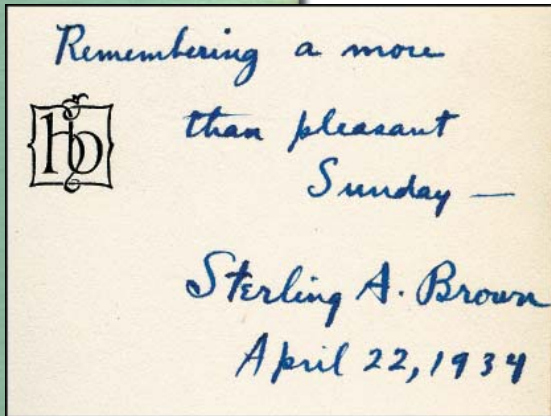 Remembering a more
than pleasant
Sunday —
Sterling A. Brown
April 22, 1934